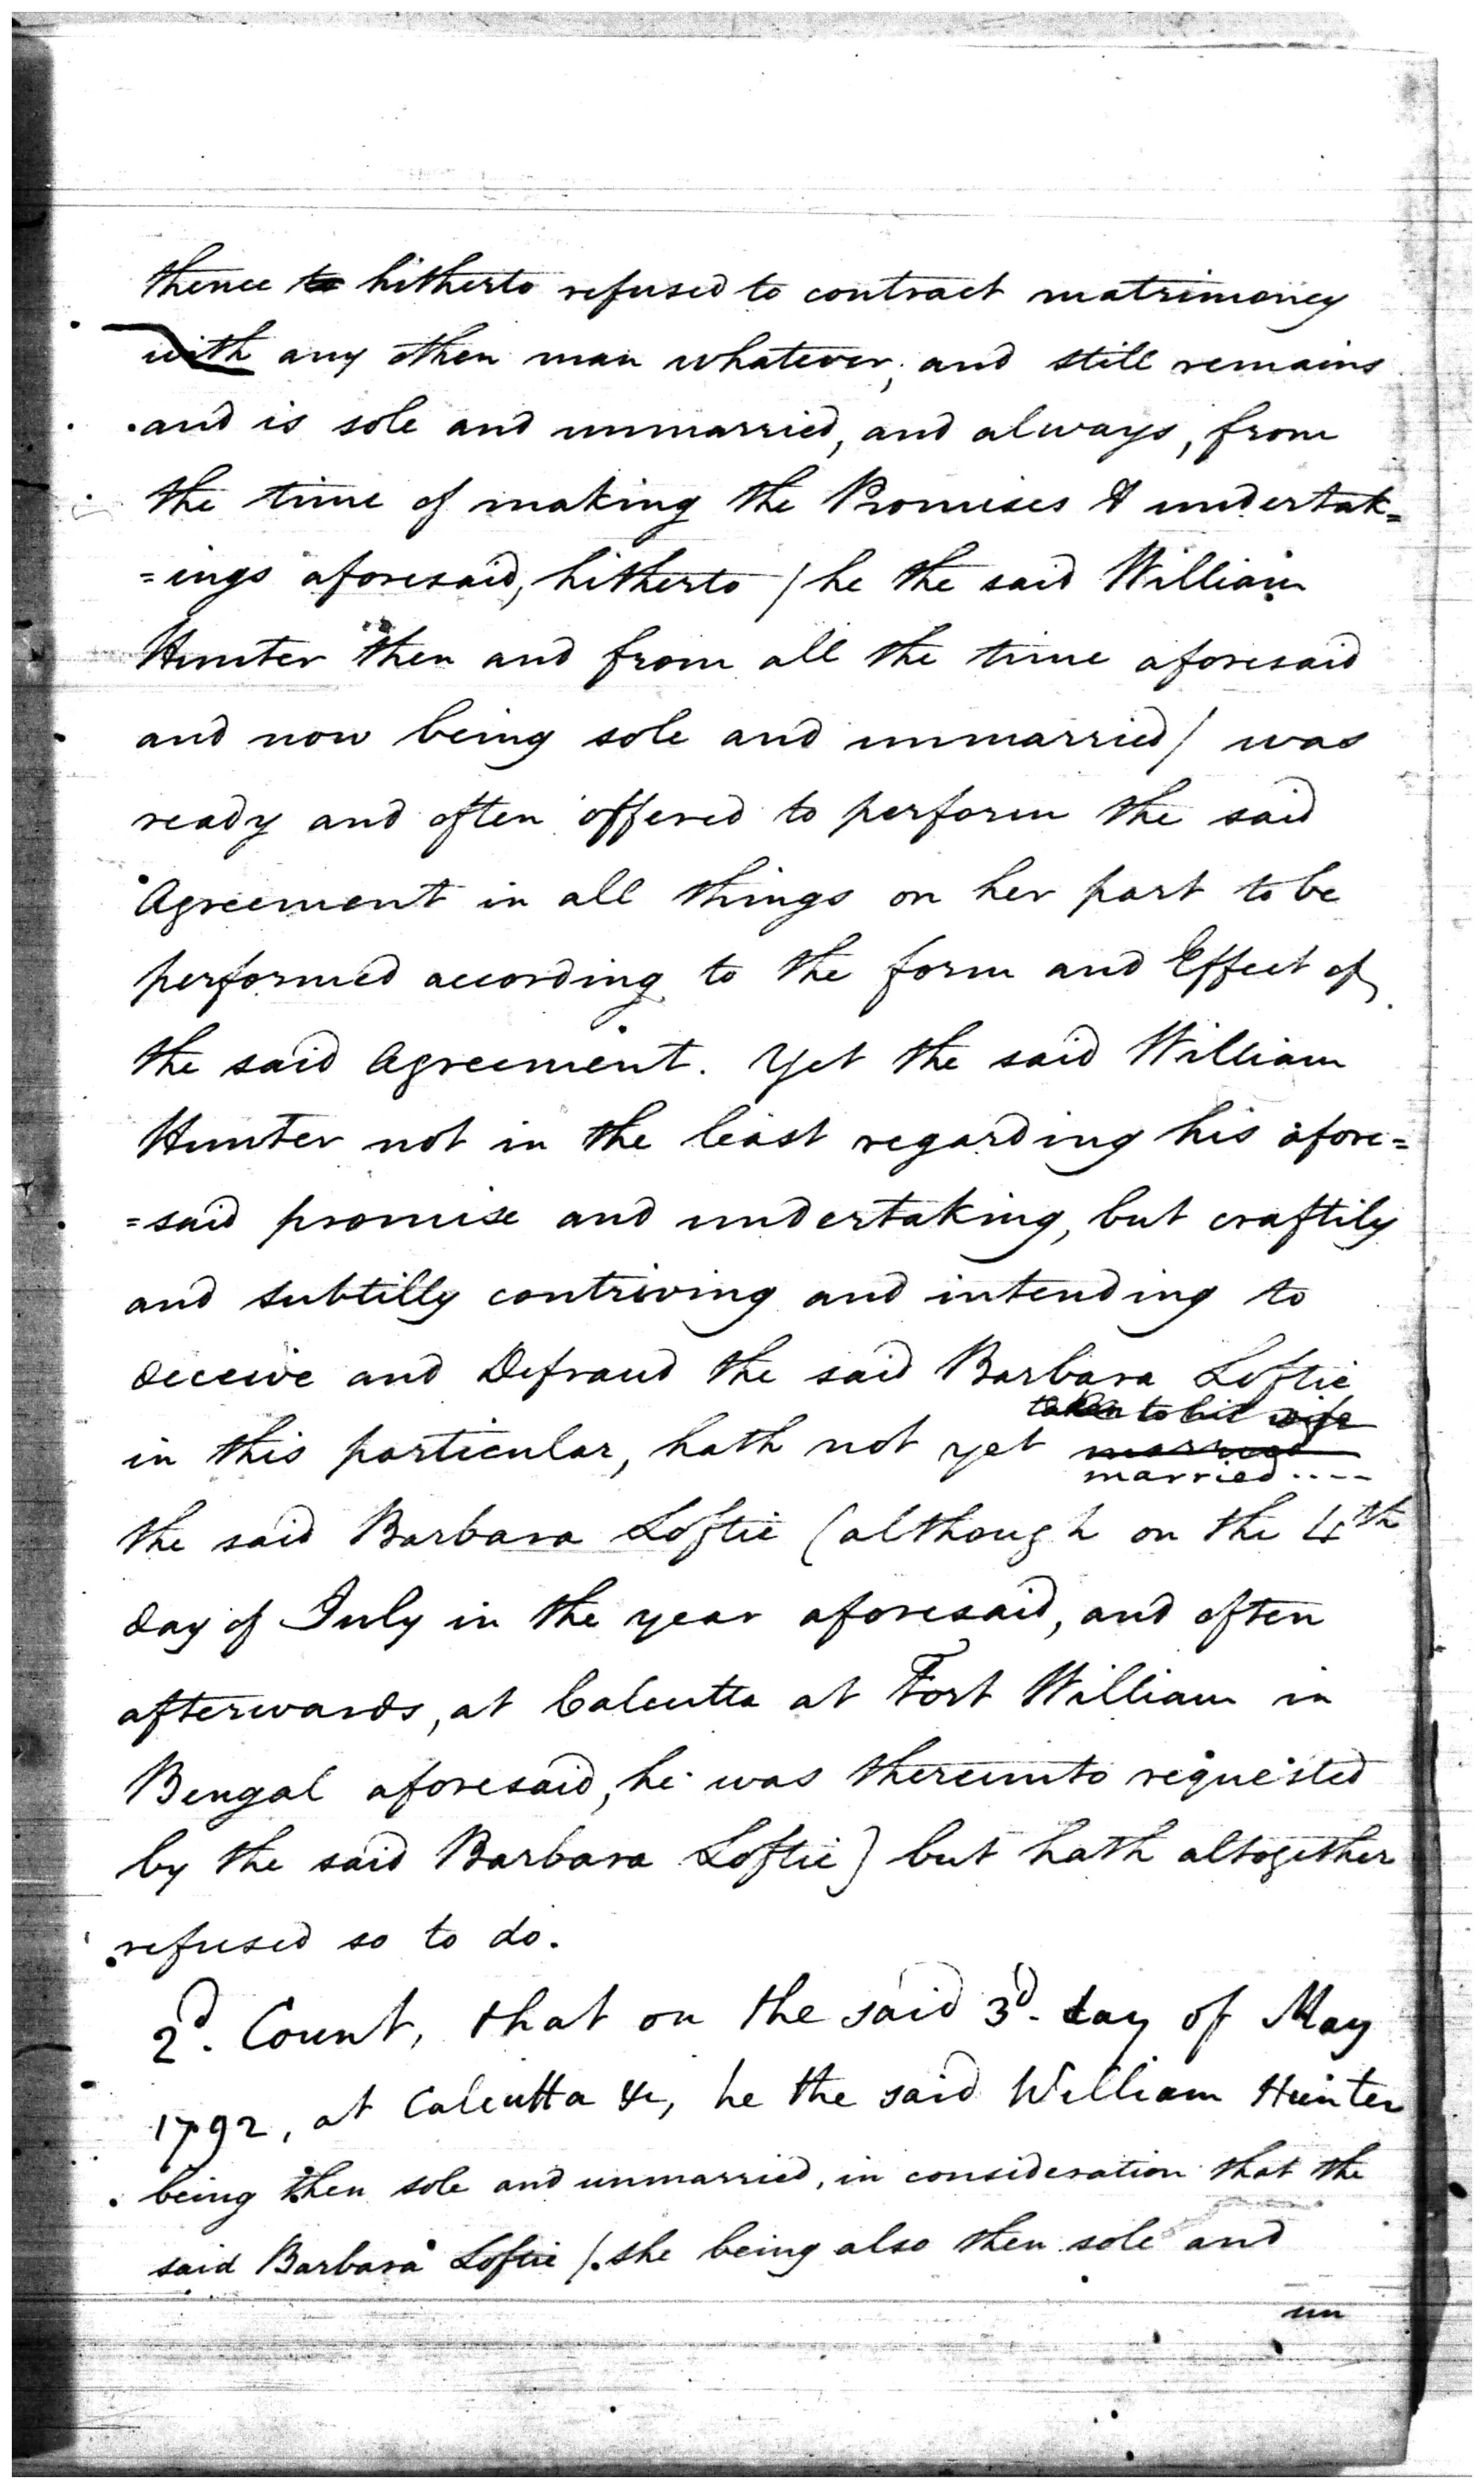 thence to hitherto refused to contract matrimoney
with any other man whatever; and still remains
and is sole and unmarried, and always, from
the time of making the Promises & undertak=
=ings aforesaid, hitherto / he the said William
Hunter then and from all the time aforesaid
and now being sole and unmarried / was
ready and often offered to perform the said
Agreement in all things on her part to be
performed according to the form and Effect of
the said Agreement. Yet the said William
Hunter not in the least regarding his afore=
=said promise and undertaking, but craftily
and subtilly contriving and intending to
deceive and Defraud the said Barbara Loftie
taken to his wife
in this particular, hath not yet married
married....
the said Barbara Loftie (although on the 4th
day of July in the year aforesaid, and often
afterwards, at Calcutta at Fort William in
Bengal aforesaid, he was thereunto requested
by the said Barbara Loftie) but hath altogether
refused so to do.
2d. Count, that on the said 3d. day of May
1792, at Calcutta &c, he the said William Hunter
being then sole and unmarried, in consideration that the
said Barbara Loftie /. she being also then sole and
un